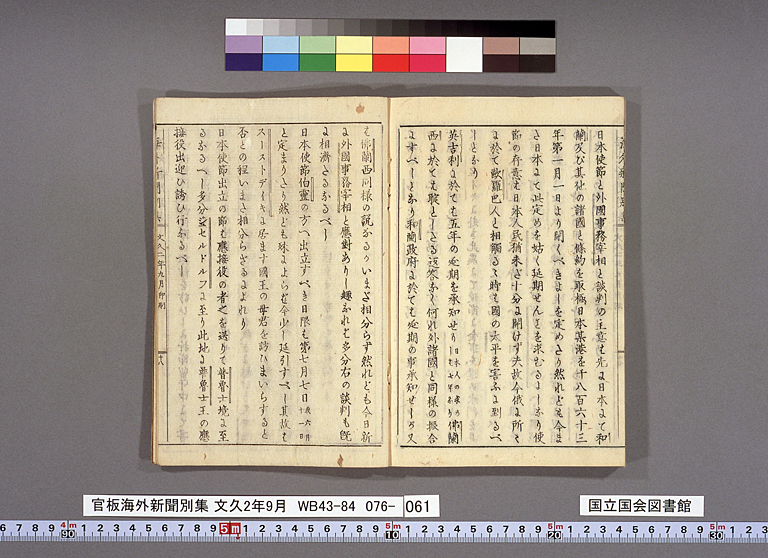 日本使節と外國事務宰相と談判の主意も先よ日本よて和
蘭及び其他の諸國と條約を取極日本某港を千八百六十三
年第一月一日より開くべきよしを定めさり然れども今ま
さ日本よて其定めを姑く延期せんとを求むるよしなり使
節の存意も日本人民猶未さ十分よ開けず夫故今俄よ所々
よ於て歐羅巴人と相觸るゝ時も國の太平を害ふよ到るべ
しとなり
英吉利よ於ても五年の延期を承知せり
佛蘭
西よ於ても聢としさる返答なく何れ外諸國と同様の振合
よすべしとなり和蘭政府よ於ても延期の事承知せしも又
も佛蘭西同様の説なるういまさ相分らず然れども今日新
よ外國事務宰相と應對ありし趣なれも多分右の談判も既
よ相濟さるなるべし
日本使節伯靈の方へ出立すべき日限も第七月七日
我六月
十一日
と定まりさり然ども妹よよらむ今少し延引すべし其故も
スーストデイキよ居ます國王の母君を訪ひまいらすると
否との程いまさ相分らざるよよれり
日本使節出立の節も應接役の者之を送りて普魯士境よ至
るなるべし多分ヂセルドルフよ至り此地よ普魯士王の應
接役出迎ひ誘ひ行なるべし
文久二年九月
印刷
八
官板海外新聞別集 文久2年9月 WB43-84 076-
061
国立国会図書館